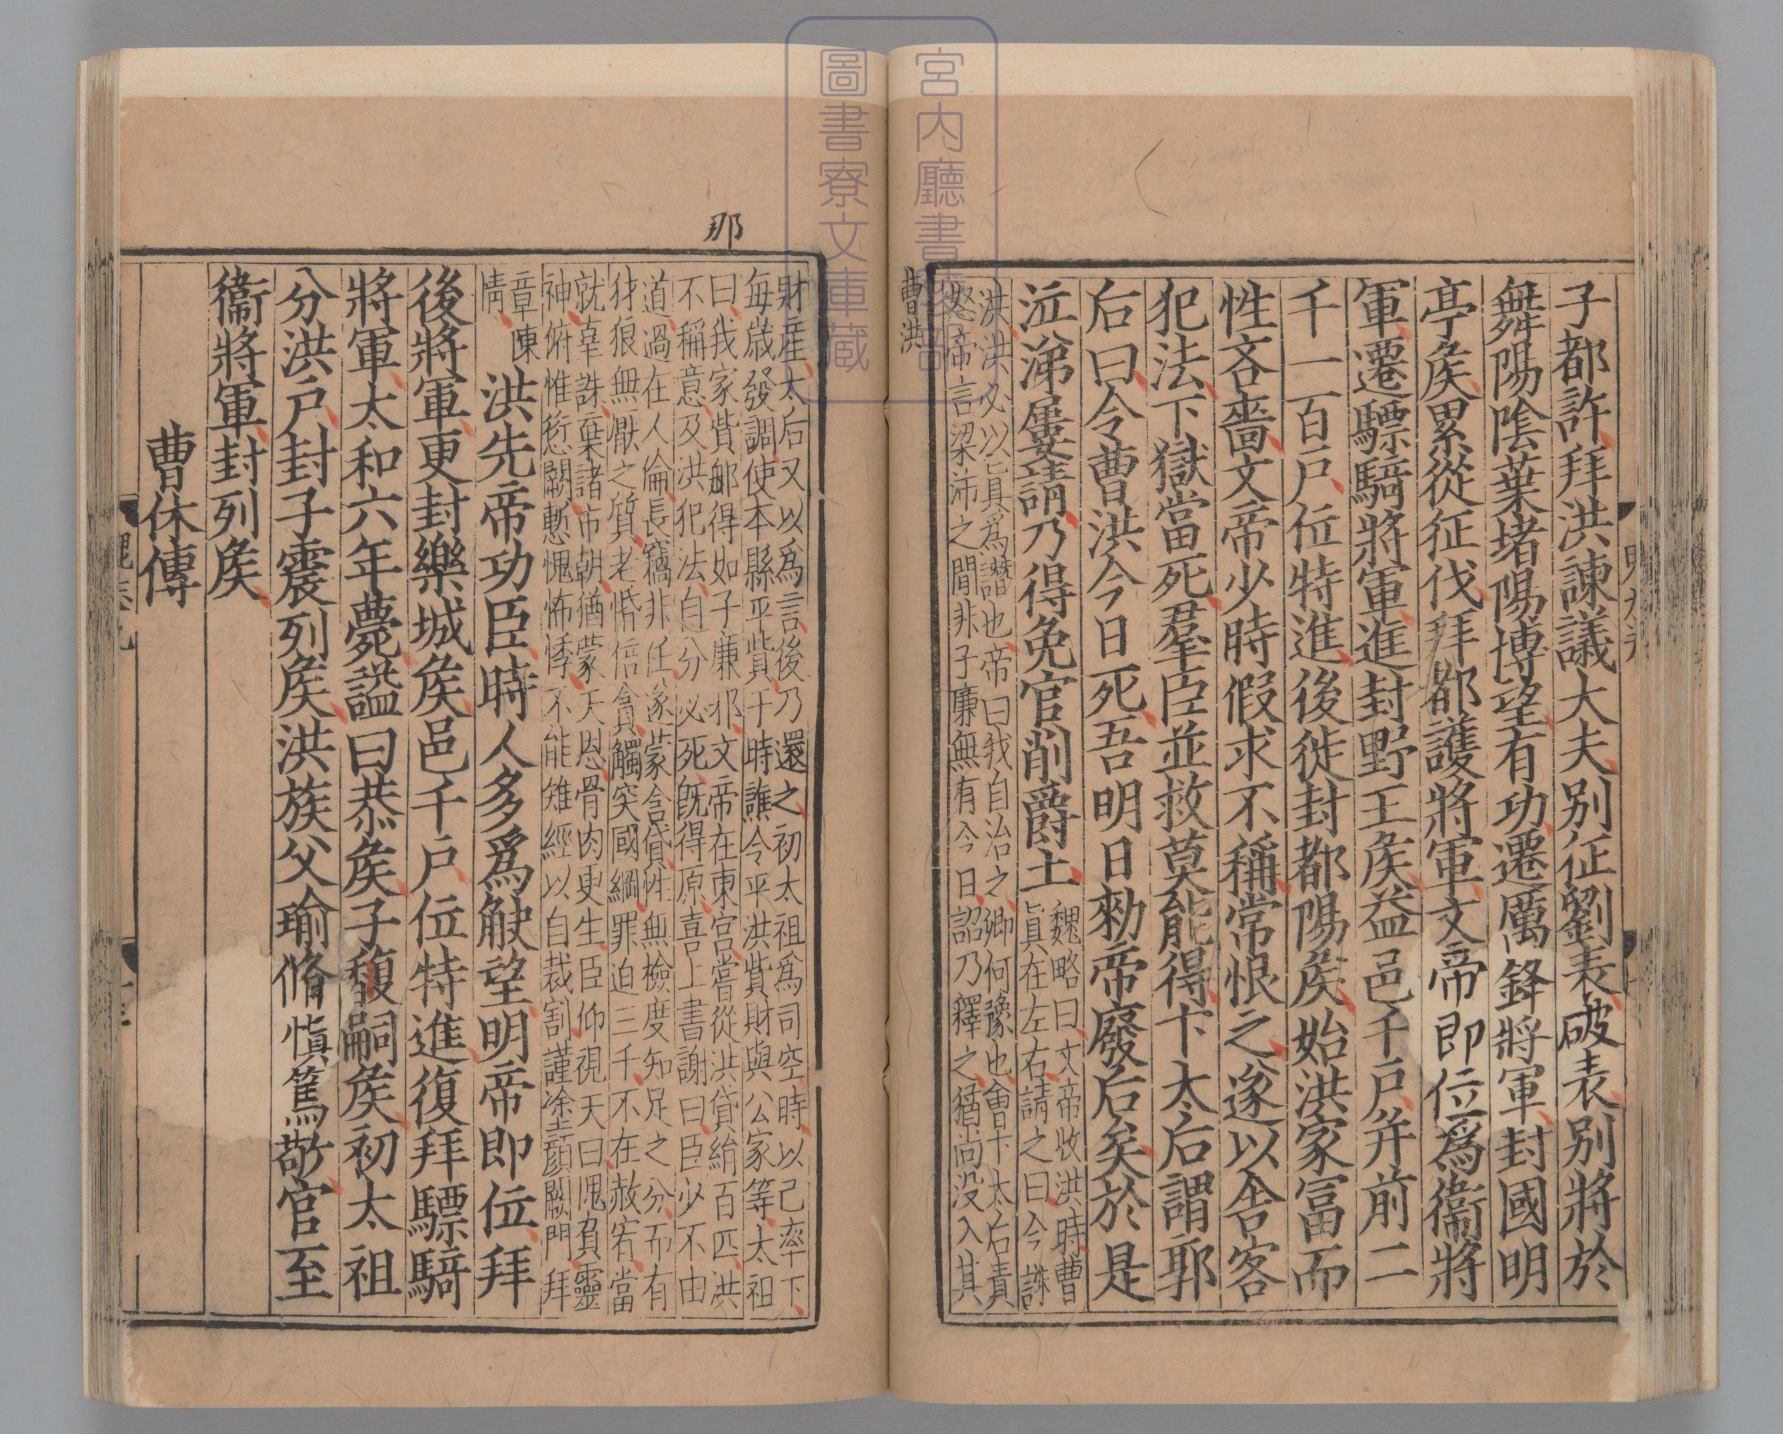 子都許拜洪諫議大夫別征劉表破表別將於
舞陽陰葉堵陽博望有功遷厲鋒將軍封國明
亭矦累從征伐拜都護將軍文帝即位爲衞將
軍遷驃騎將軍進封野王矦益邑千戶并前二
千一百戶位特進後徙封都陽矦始洪家冨而
性吝嗇文帝少時假求不稱常恨之遂以舎客
犯法下獄當死羣臣並救莫能得卞太后謂郭
后曰令曹洪今日死吾明日勑帝廢后矣於是
泣涕屢請乃得免官削爵土
魏略曰文帝收洪時曹
眞在左右請之曰今誅
洪洪必以眞爲譖也帝曰我自治之卿何豫也會卞太后責
怒帝言梁沛之間非子廉無有今日詔乃釋之猶尚没入其
曹洪
財産太后又以爲言後乃還之初太祖爲司空時以己率下
每歲發調使本縣平貲于時譙令平洪貲財與公家等太祖
曰我家貲邮得如子廉邪文帝在東宫嘗從洪貸絹百匹洪
不稱意及洪犯法自分必死旣得原喜上書謝曰臣少不由
道過在人倫長竊非任遂蒙含貸性無檢度知足之分而有
犲狼無厭之質老惛倍貪觸突國網罪迫三千不在赦宥當
就辜誅棄諸市朝猶蒙天恩骨肉更生臣仰視天曰愧負靈
神俯惟愆闕慙愧怖悸不能雉經以自裁割謹塗顔闕門拜
章陳
情
洪先帝功臣時人多爲觖望明帝即位拜
後將軍更封樂城矦邑千戶位特進復拜驃騎
將軍太和六年薨謚曰恭矦子馥嗣矦初太祖
分洪戶封子震列矦洪族父瑜脩慎篤敬官至
衞將軍封列矦
曹休傳
那
宮内廳書陵部
圖書寮文庫藏